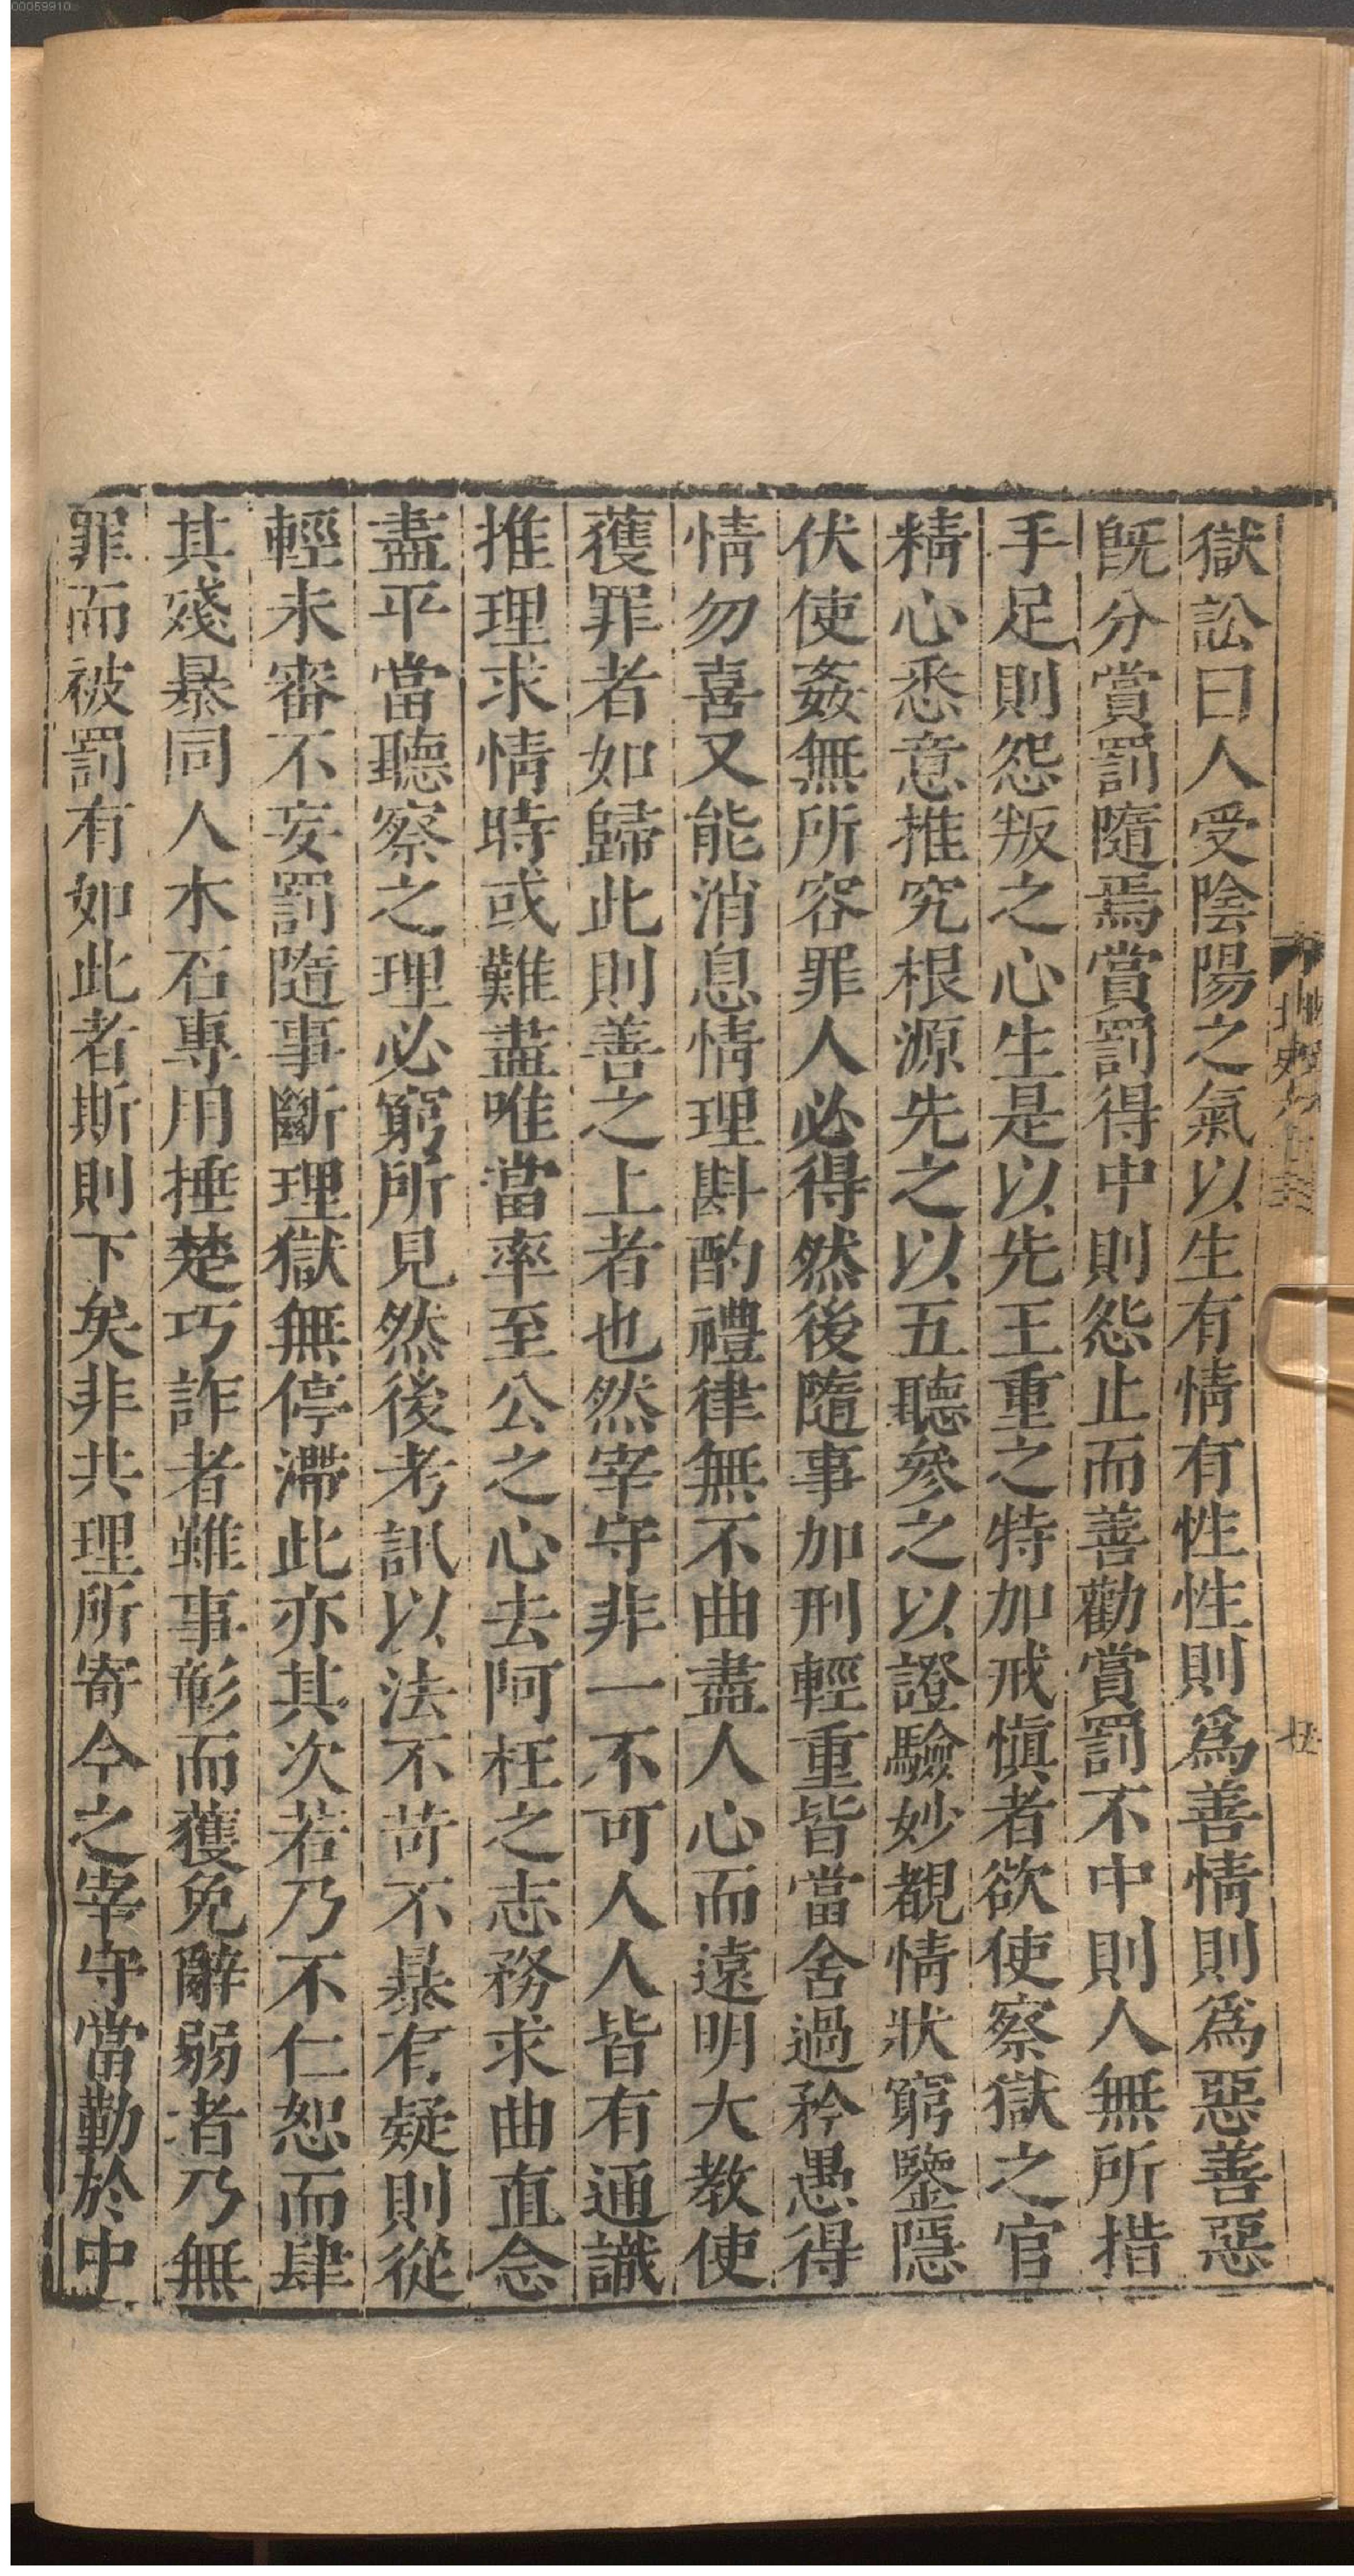 00059910
獄訟曰人受陰陽之氣以生有情有性性則爲善情則爲惡善惡
旣分賞罰隨焉賞罰得中則怨止而善勸賞罰不中則人無所措
手足則怨叛之心生是以先王重之特加戒愼者欲使察獄之官
精心悉意推究根源先之以五聽參之以證驗妙覩情狀窮鑒隱
伏使姦無所容罪人必得然後隨事加刑輕重皆當舍過矜愚得
情勿喜又能消息情理斟酌禮律無不曲盡人心而遠明大教使
獲罪者如歸此則善之上者也然宰守非一不可人人皆有通識
推理求情時或難盡唯當率至公之心去阿枉之志務求曲直念
盡平當聽察之理必窮所見然後考訊以法不苛不暴有疑則從
輕未審不妄罰隨事斷理獄無停滯此亦其次若乃不仁恕而肆
其殘暴同人木石專用捶楚巧詐者雖事彰而獲免辭弱者乃無
罪而被罰有如此者斯則下矣非共理所寄今之宰守當勤於中